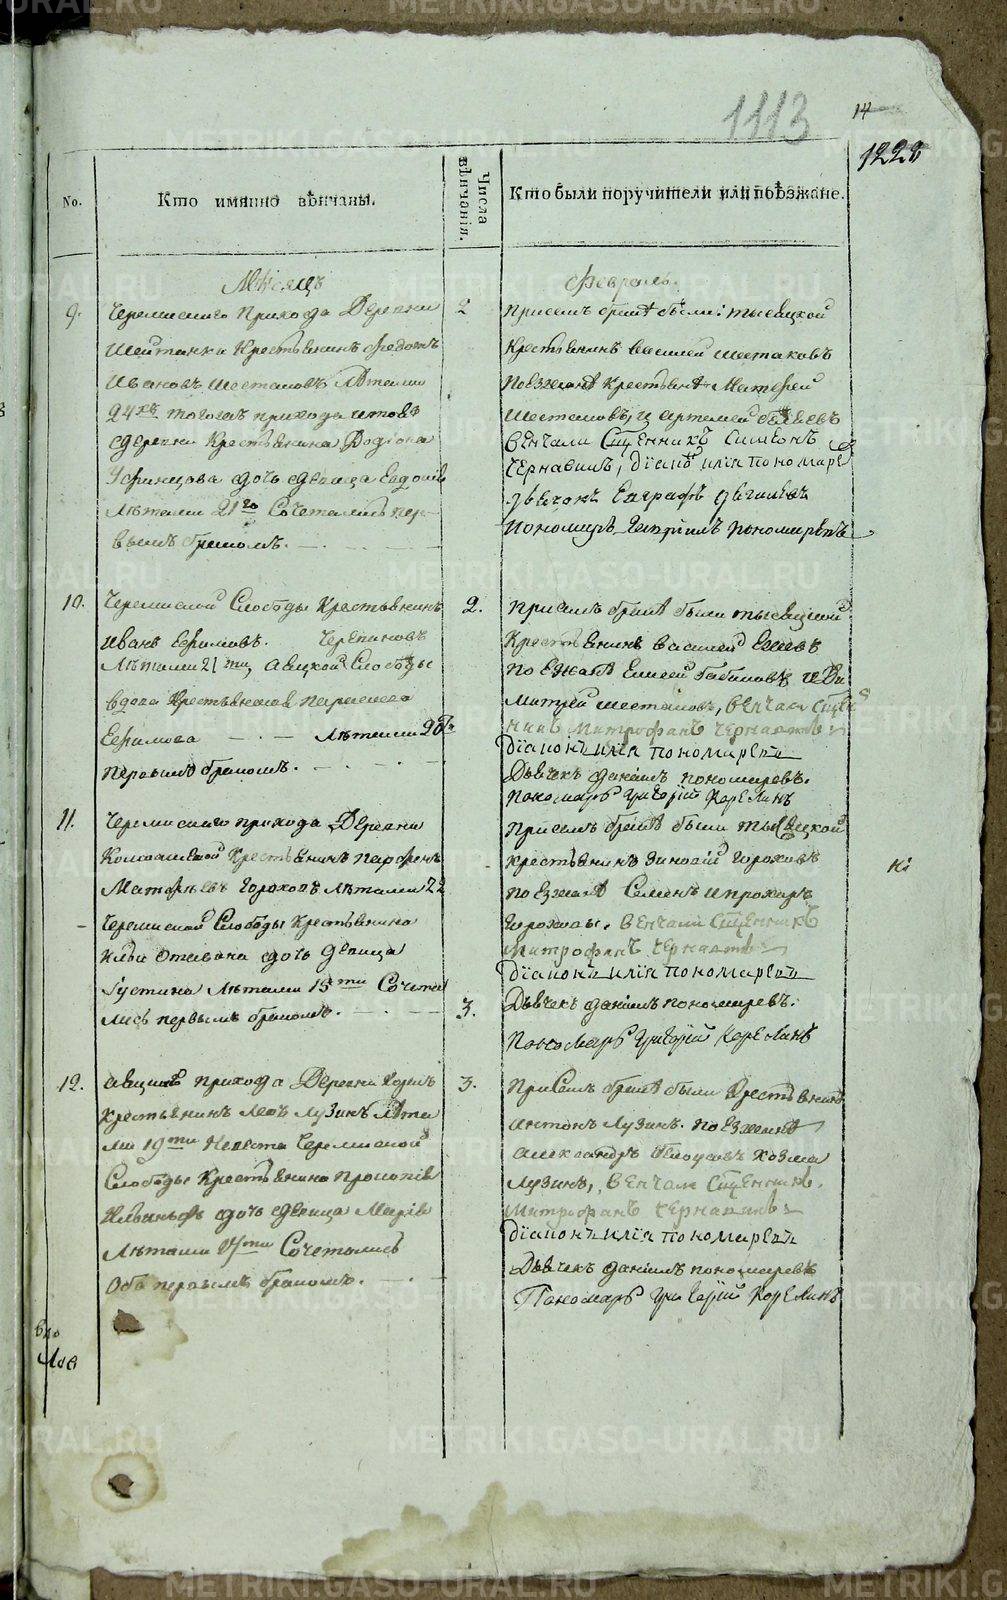 1113
14
1222
No.
Кто имянно вѣнчаны.
Числа вѣнчанія.
Кто были поручители или поѣзжане.
Мѣсяцъ
Февраль.
9.
Черемискаго Прихода Деревни
Шайтанки Крестьянинъ Федотъ
Ивановъ Шестаковъ Лѣтами
24хъ тогожъ прихода
деревни Крестьянина Родіона
дочь девица Евдокія
Лѣтами 21го Сочетались пер-
вымъ бракомъ.
2
При семъ браке были: тысяцкой
Крестьянинъ Василей Шестаковъ
Поезжане Крестьяне Матвей
Шестаковъ, и Артемей
Венчали Сщенникъ Симеонъ
Чернавинъ, Діаконъ Илія Пономаре
Дьячокъ Евграфъ
Пономарь Гавріилъ Пономаревъ
10.
Черемиской Слободы Крестьянинъ
Иванъ Ефимовъ. Черепановъ
Лѣтами 21ти, Аяцкой Слободы
вдова Крестьянская
Ефимова Лѣтами 26ти
первымъ бракомъ.
2.
При семъ браке были тысяцкой
Крестьянинъ Василей
Поезжане Елисей Бабиновъ и
Шестаковъ, венчали Сщен
никъ Митрофанъ Чернавинъ
Діаконъ Илія Пономаревъ
Дьячекъ Даніилъ Пономаревъ.
Пономарь Григорій Корелинъ
11.
Черемискаго прихода Деревни
Колташевой Крестьянинъ Парфенъ
Матфѣевъ Гороховъ Лѣтами 22
Черемиской Слободы Крестьянина
дочь девица
Іустина Лѣтами 18ти Сочета
лись первымъ бракомъ.
3.
При семъ браке были тысяцкой
Крестьянинъ Зиновій Гороховъ
Поезжане Семенъ и Прохоръ
Гороховы. Венчали Сщенникъ
Митрофанъ Чернавинъ
Діаконъ Илія Пономаревъ
Дьячекъ Даніилъ Пономаревъ.
Пономарь Григорій Корелинъ
12.
Аяцкаго прихода Деревни
Крестьянинъ Левъ Лузинъ Лѣта
ми 19ти Невеста Черемиской
Слободы Крестьянина Прокопія
дочь девица Марія
Лѣтами 17ти Сочетались
Оба первымъ бракомъ.
3.
При семъ браке были Крестьянинъ
Антонъ Лузинъ. Поезжане
Александръ Белоусовъ Козма
Лузинъ, Венчали Сщенникъ.
Митрофанъ Чернавинъ
Діаконъ Илія Пономаревъ
Дьячекъ Даніилъ Пономаревъ
Пономарь Григорій Корелинъ
METRIKI.GASO-URAL.RU